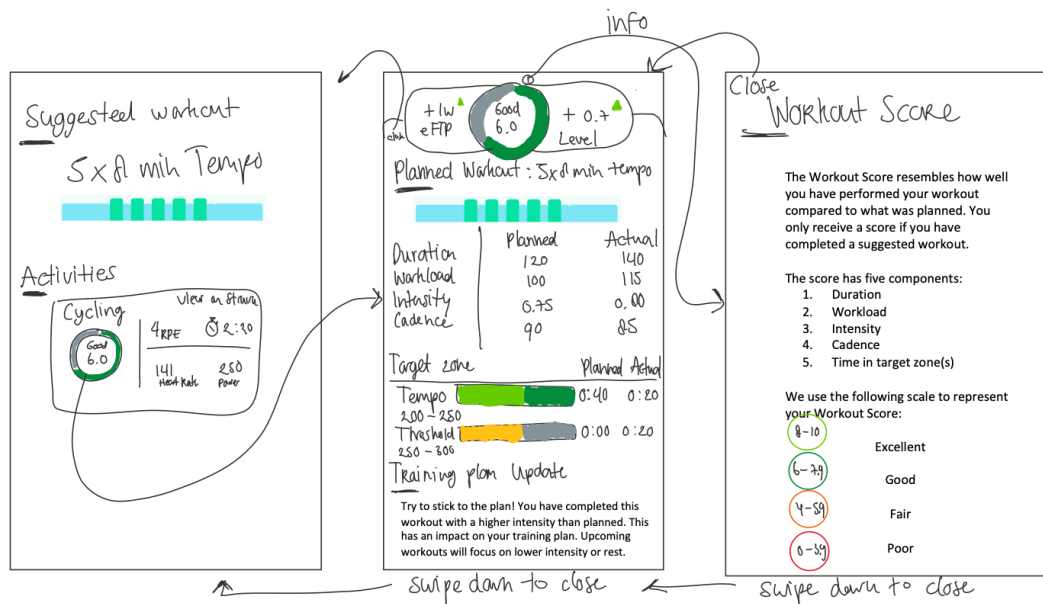 info
Suggested workout
5x8 min Tempo
Activities
Cycling
View on Strava
Good
6.0
4 RPE
2:20
141
Heart Rate
250
Power
close
+1W
eFTP
Good
6.0
+ 0.7
Level
Planned Workout: 5x8 min tempo
Planned Actual
Duration 120 140
Workload 100 115
Intensity 0.75
Cadence 90 85
Target zone Planned Actual
Tempo 0:40 0:20
200-250
Threshold 0:00 0:20
250-300
Training plan Update
Try to stick to the plan! You have completed this
workout with a higher intensity than planned. This
has an impact on your training plan. Upcoming
workouts will focus on lower intensity or rest.
swipe down to close
Close
Workout Score
The Workout Score resembles how well
you have performed your workout
compared to what was planned. You
only receive a score if you have
completed a suggested workout.
The score has five components:
1. Duration
2. Workload
3. Intensity
4. Cadence
5. Time in target zone(s)
We use the following scale to represent
your Workout Score:
8-10 Excellent
6-7.9 Good
4-5.9 Fair
0-3.9 Poor
swipe down to close